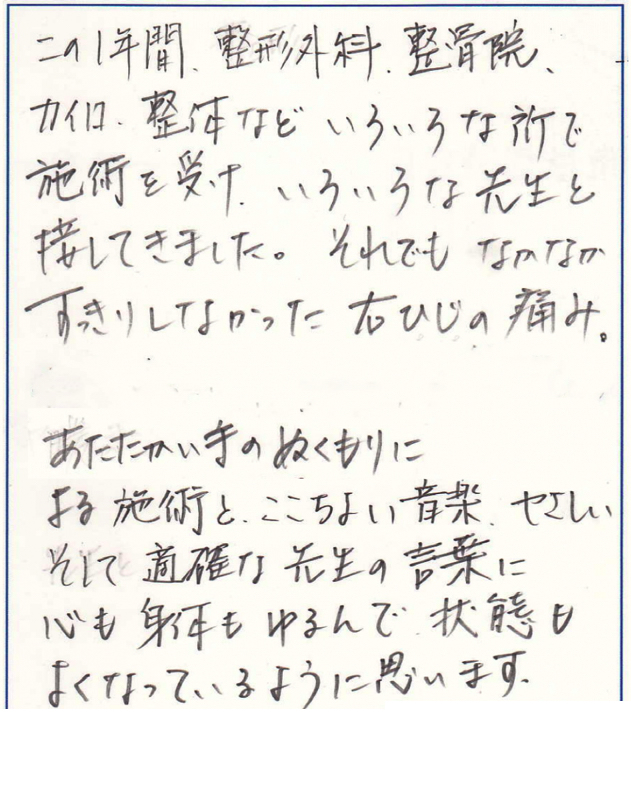 この1年間、整形外科、整骨院、
カイロ、整体など いろいろな所で
施術を受け、いろいろな先生と
接してきました。それでも なかなか
すっきりしなかった 右ひじの痛み。
あたたかい手のぬくもりに
よる施術と、ここちよい音楽、やさしい
そして適確な先生の言葉に
心も身体もゆるんで 状態も
よくなっているように思います。